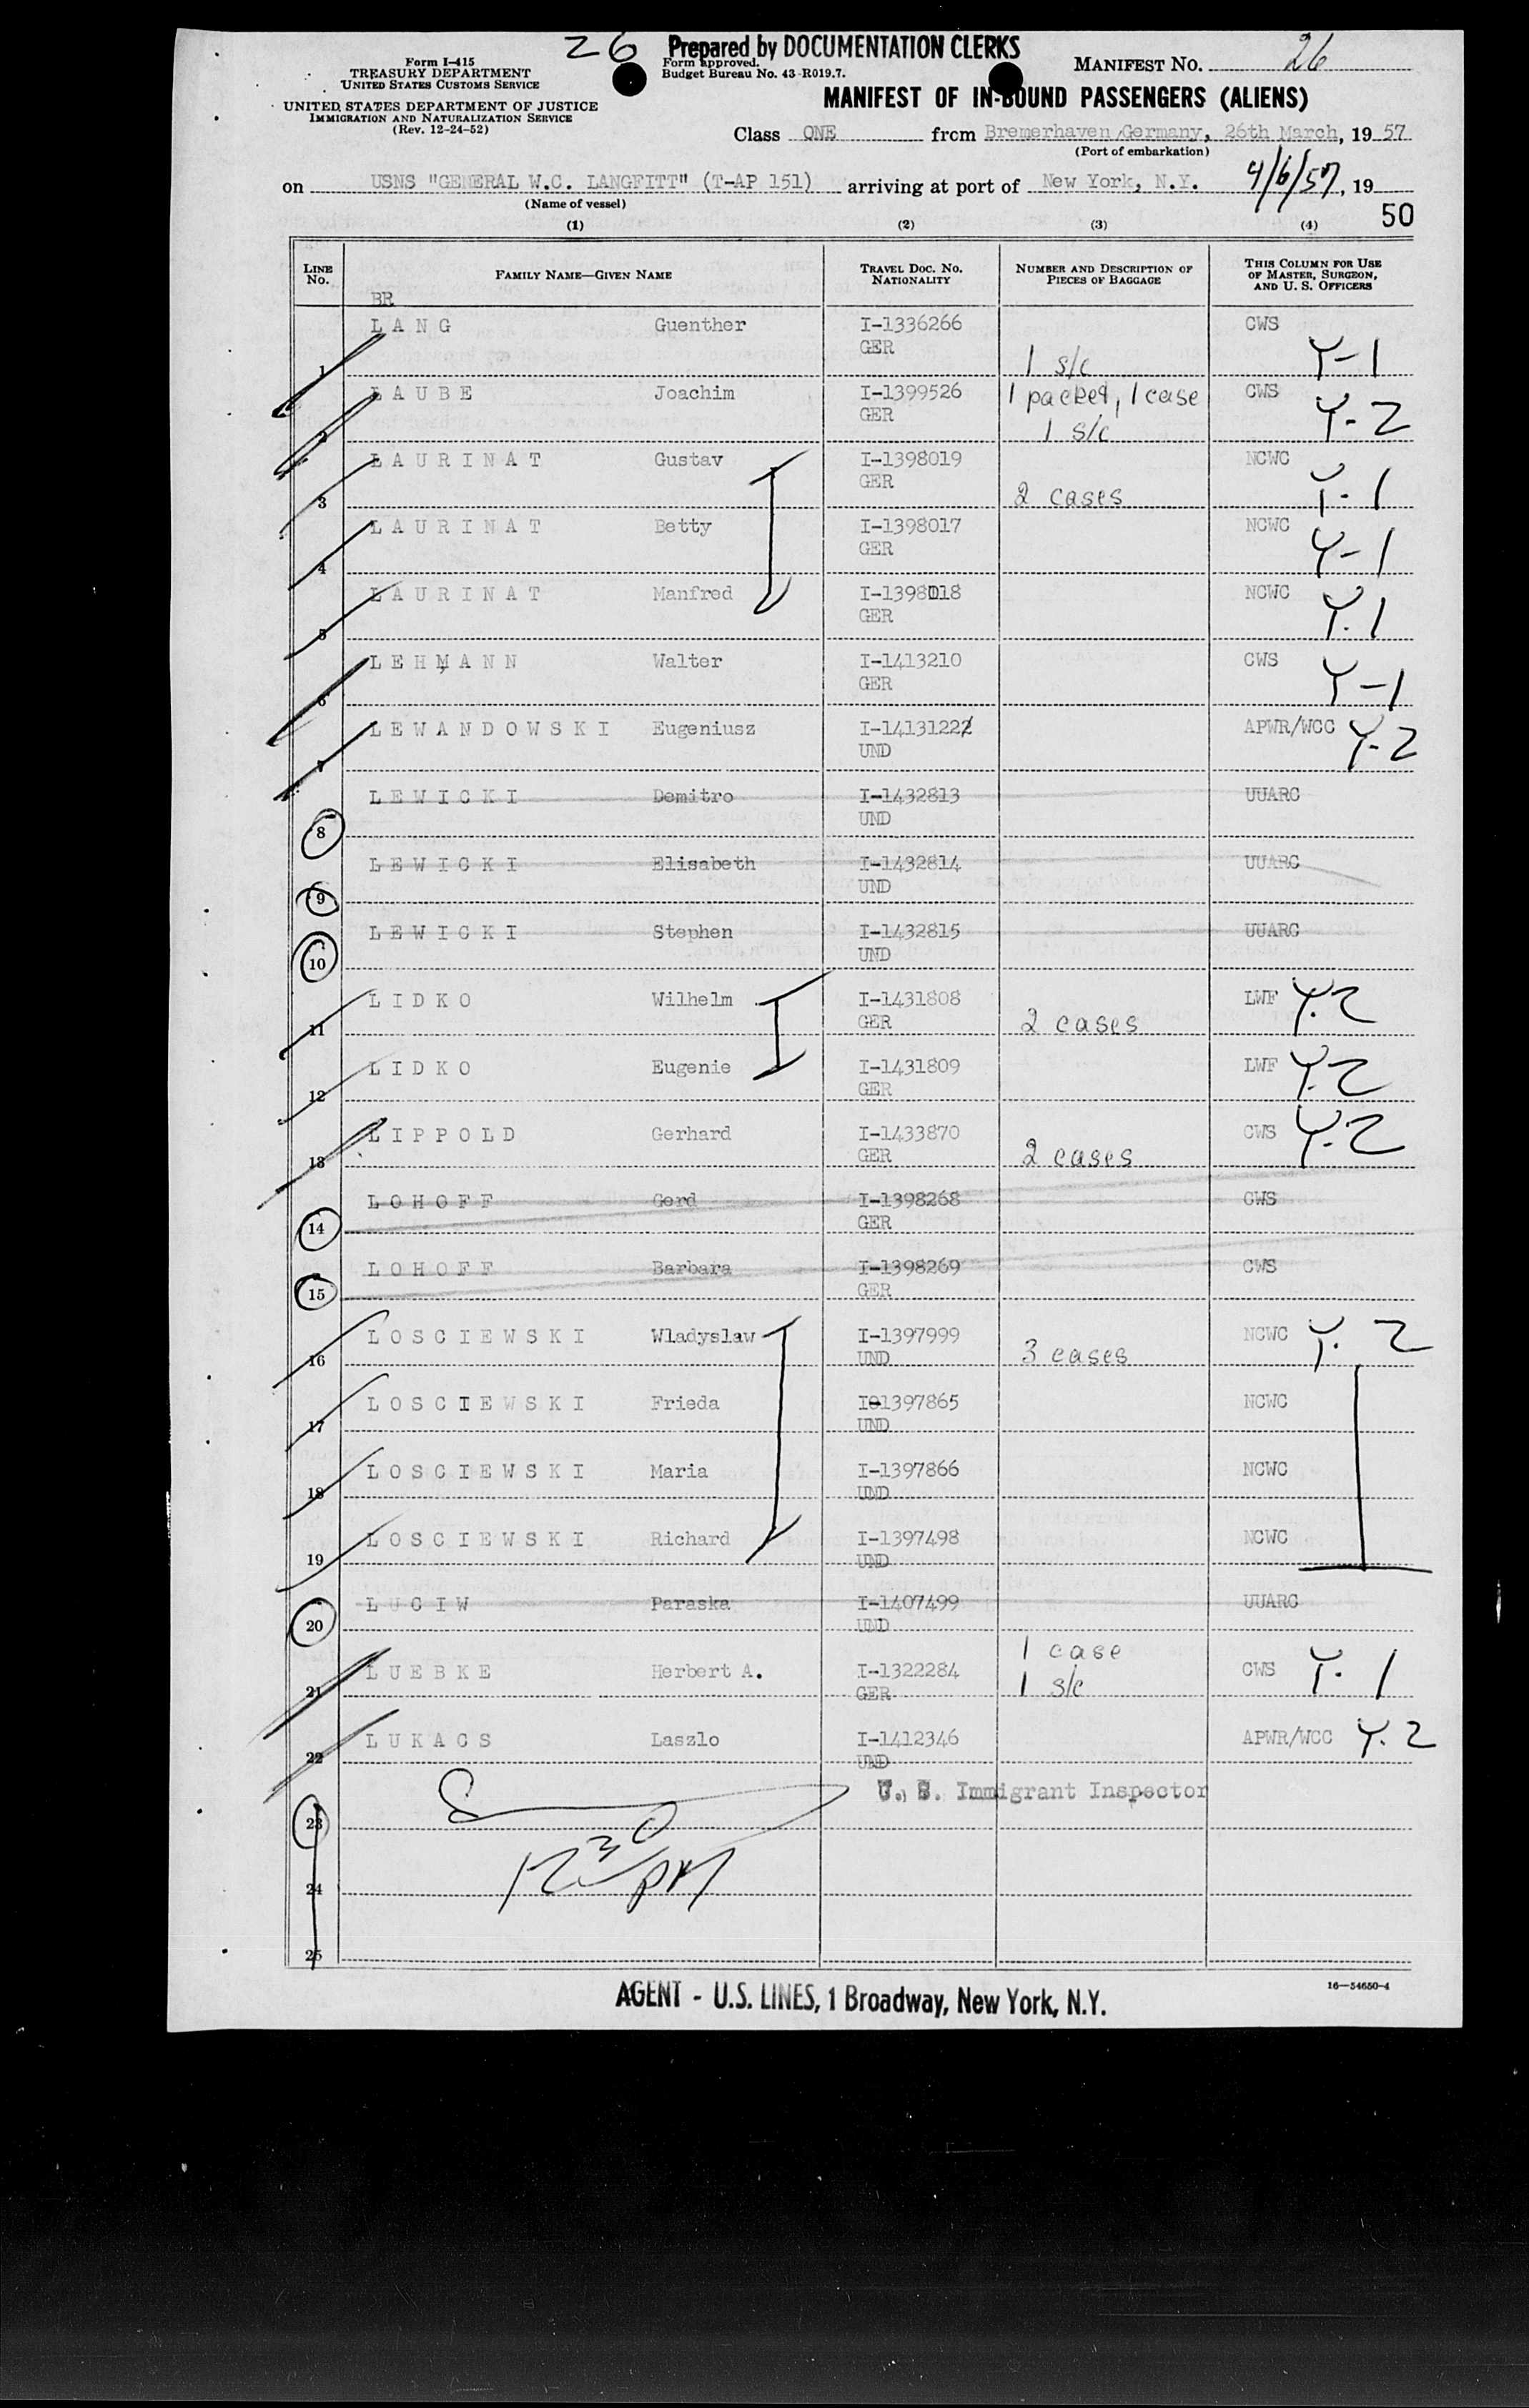 26 Prepared by DOCUMENTATION CLERKS
Form I-415
TREASURY DEPARTMENT
UNITED STATES CUSTOMS SERVICE
UNITED STATES DEPARTMENT OF JUSTICE
IMMIGRATION AND NATURALIZATION SERVICE
(Rev. 12-24-52)
Form approved.
Budget Bureau No. 43-R019.7.
MANIFEST NO. 26
MANIFEST OF IN-BOUND PASSENGERS (ALIENS)
Class ONE from Bremerhaven/Germany, 26th March, 19 57
(Port of embarkation)
on USNS "GENERAL W.C. LANGFITT" (T-AP 151) arriving at port of New York, N.Y. 4/6/57, 19
(Name of vessel)
50
(1) (2) (3) (4)
LINE NO. FAMILY NAME—GIVEN NAME TRAVEL DOC. NO. NATIONALITY NUMBER AND DESCRIPTION OF PIECES OF BAGGAGE THIS COLUMN FOR USE OF MASTER, SURGEON, AND U. S. OFFICERS
BR
1 LANG Guenther I-1336266 GER 1 s/c CWS Y-1
2 LAUBE Joachim I-1399526 GER 1 packet, 1 case 1 s/c CWS Y-2
3 LAURINAT Gustav I-1398019 GER 2 cases NCWC Y-1
4 LAURINAT Betty I-1398017 GER NCWC Y-1
5 LAURINAT Manfred I-1398018 GER NCWC Y.1
6 LEHMANN Walter I-1413210 GER CWS Y-1
7 LEWANDOWSKI Eugeniusz I-1413122 UND APWR/WCC Y-2
8 LEWICKI Demitro I-1432813 UND UUARC
9 LEWICKI Elisabeth I-1432814 UND UUARC
10 LEWICKI Stephen I-1432815 UND UUARC
11 LIDKO Wilhelm I-1431808 GER 2 cases LWF Y.2
12 LIDKO Eugenie I-1431809 GER LWF Y.2
13 LIPPOLD Gerhard I-1433870 GER 2 cases CWS Y.2
14 LOHOFF Gerd I-1398268 GER CWS
15 LOHOFF Barbara I-1398269 GER CWS
16 LOSCIEWSKI Wladyslaw I-1397999 UND 3 cases NCWC Y. 2
17 LOSCIEWSKI Frieda I-1397865 UND NCWC
18 LOSCIEWSKI Maria I-1397866 UND NCWC
19 LOSCIEWSKI Richard I-1397498 UND NCWC
20 LUCIW Paraska I-1407499 UND UUARC
21 LUEBKE Herbert A. I-1322284 GER 1 case 1 s/c CWS Y. 1
22 LUKACS Laszlo I-1412346 UND APWR/WCC Y.2
U. S. Immigrant Inspector
23
12 30 PM
24
25
AGENT - U.S. LINES, 1 Broadway, New York, N.Y.
16—54650-4